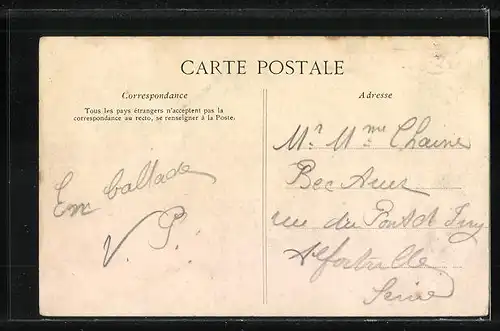 CARTE POSTALE
Correspondance
Tous les pays étrangers n'acceptent pas la
correspondance au recto, se renseigner à la Poste.
Adresse
Em ballade
V. P.
Mr Mme Chaine
Bec
rue du Pont d'Ivry
Alfortville
Seine